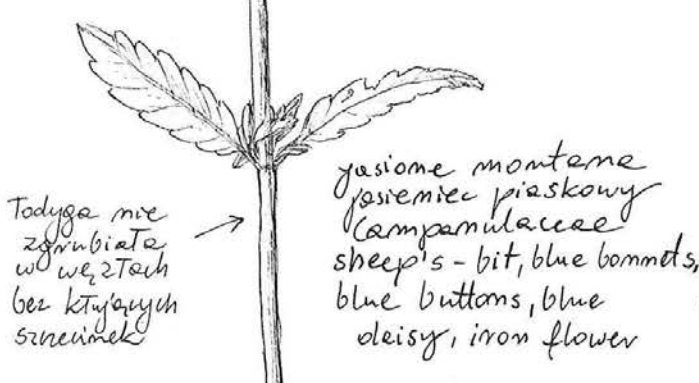 Łodyga nie
zgrubiała
w węzłach
bez kłujących
szczecinek
jasione montana
jasieniec piaskowy
Campanulaceae
sheep's-bit, blue bonnets,
blue buttons, blue
daisy, iron flower